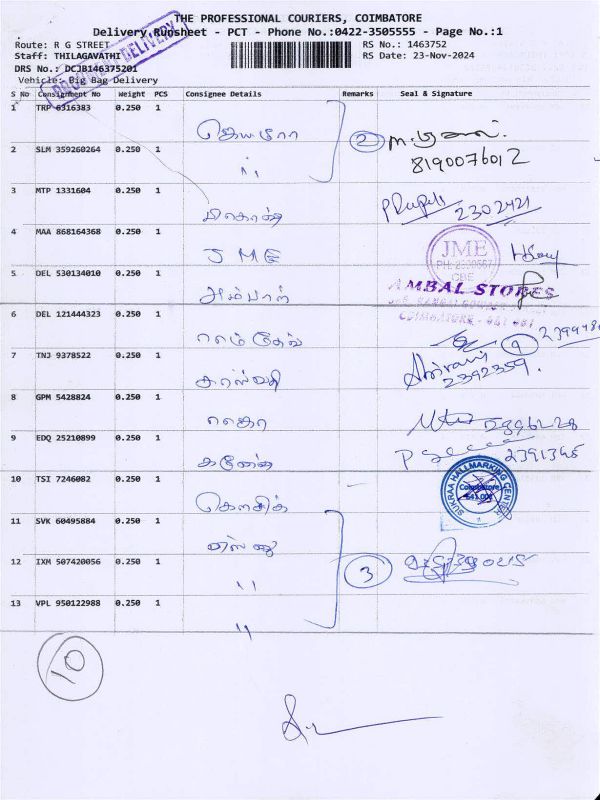 THE PROFESSIONAL COURIERS, COIMBATORE
Delivery Runsheet - PCT - Phone No.:0422-3505555 - Page No.:1
Route: R G STREET
RS No.: 1463752
Staff: THILAGAVATHI
RS Date: 23-Nov-2024
DRS No.: DCJB146375201
Vehicle: Big Bag Delivery
DELIVERY
S No Consignment No Weight PCS Consignee Details Remarks Seal & Signature
1 TRP 6316383 0.250 1
2
8190076012
2 SLM 359260264 0.250 1 "
3 MTP 1331604 0.250 1 2302421
4 MAA 868164368 0.250 1 JME
JME
CBE
5 DEL 530134010 0.250 1 அம்பாள்
AMBAL STORES
COIMBATORE - 641 001
6 DEL 121444323 0.250 1
7 TNJ 9378522 0.250 1 2392359
8 GPM 5428824 0.250 1
9 EDQ 25210899 0.250 1 கணேஷ் 2391365
10 TSI 7246082 0.250 1 கௌசிக்
SUKRAA HALLMARKING CENTER
Coimbatore
641 001
11 SVK 60495884 0.250 1 விஷ்ணு
12 IXM 507420056 0.250 1 " 3
13 VPL 950122988 0.250 1 "
10